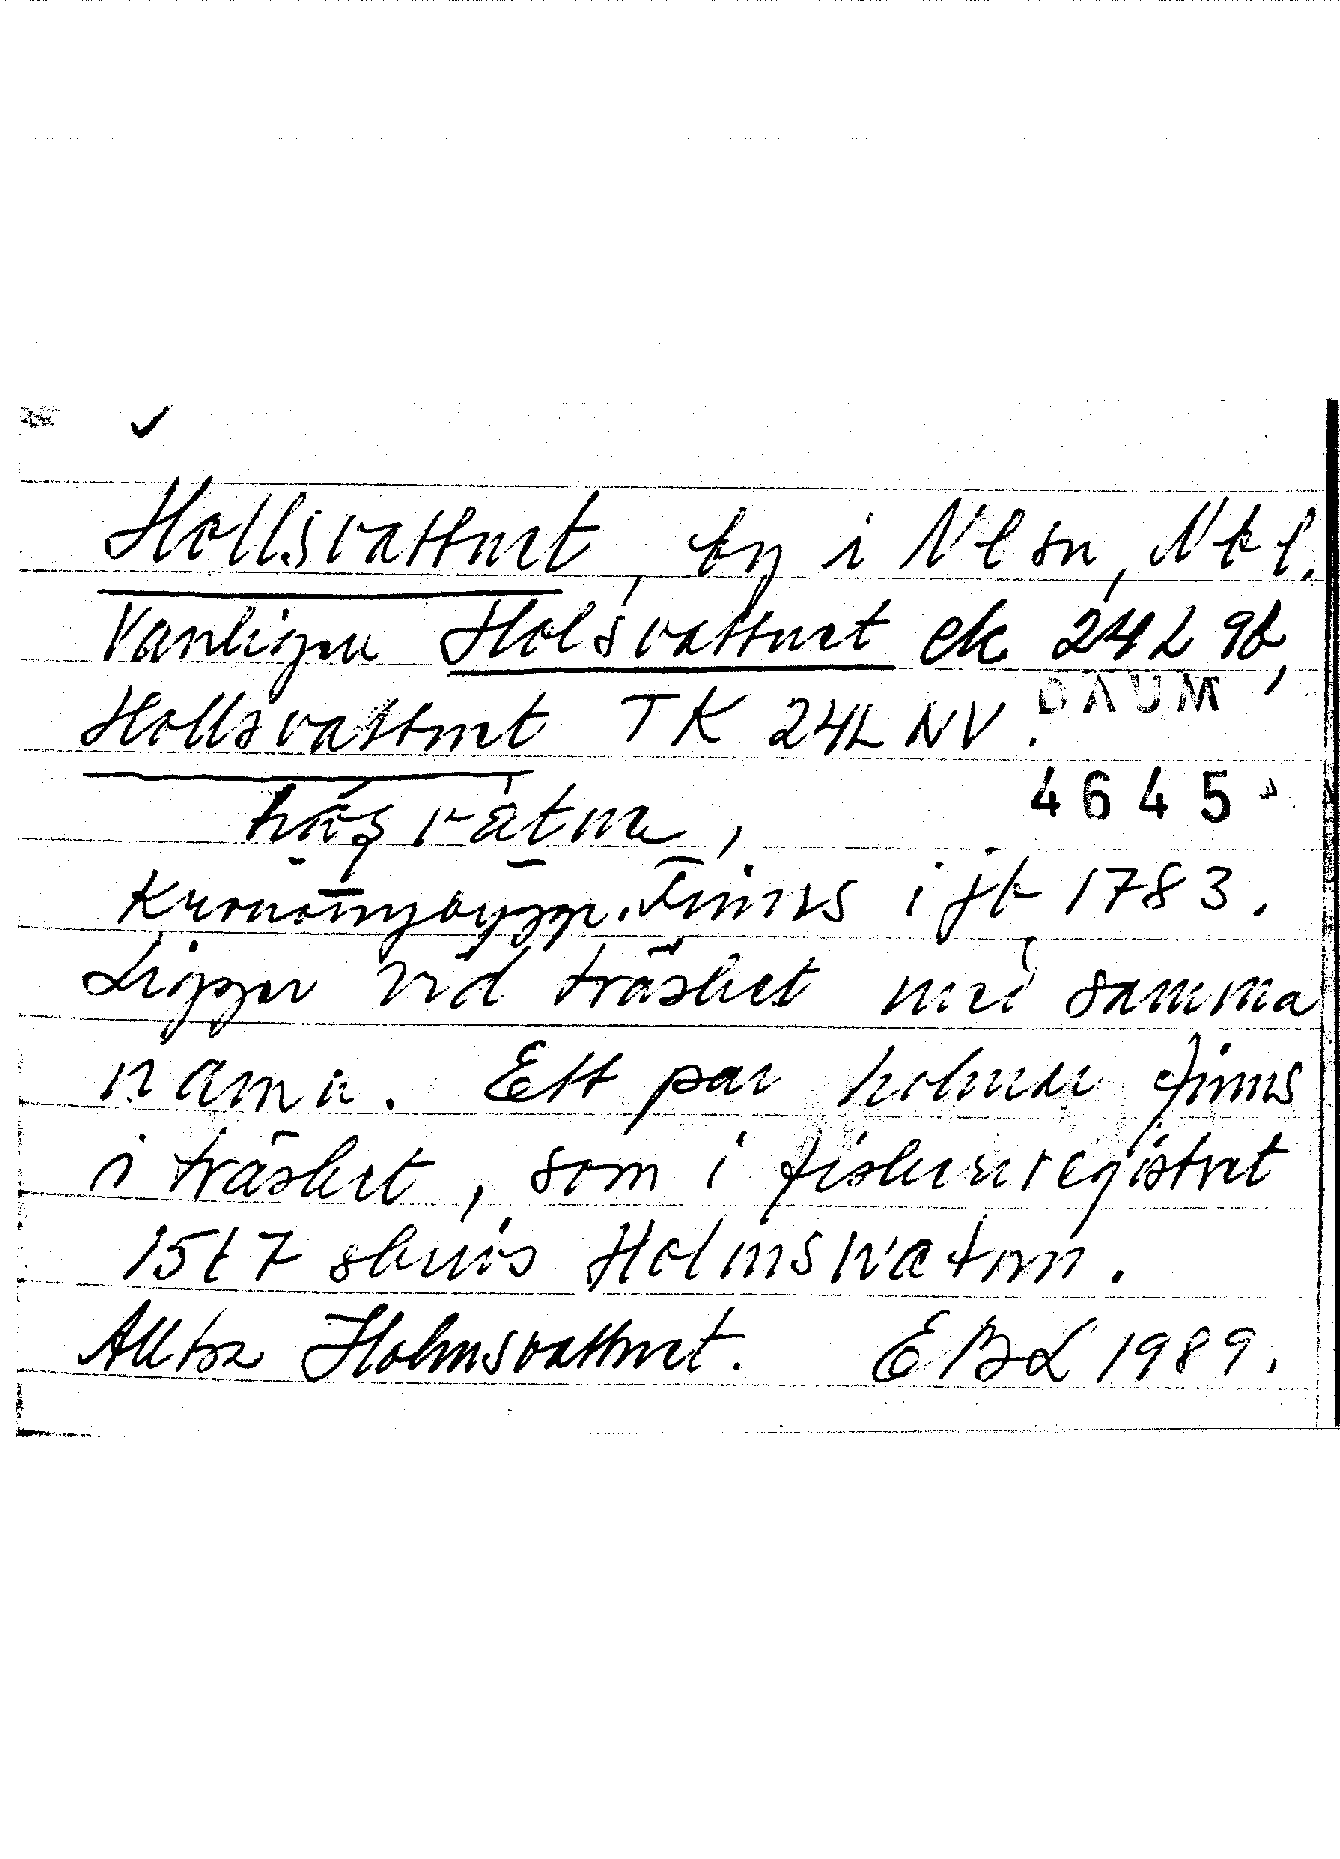 Hollsvattnet, by i Nl sn, Nbl.
Vanligen Holsvattnet ek 24L 9b,
Hollsvattnet TK 24L NV.
DAUM
4645
Krononybygge. Finns i jb 1783.
Ligger vid träsket med samma
namn. Ett par holmar finns
i träsket, som i fiskeregistret
15t7 skrivs Holmswatnn.
Alltså Holmsvattnet. EBL 1989.